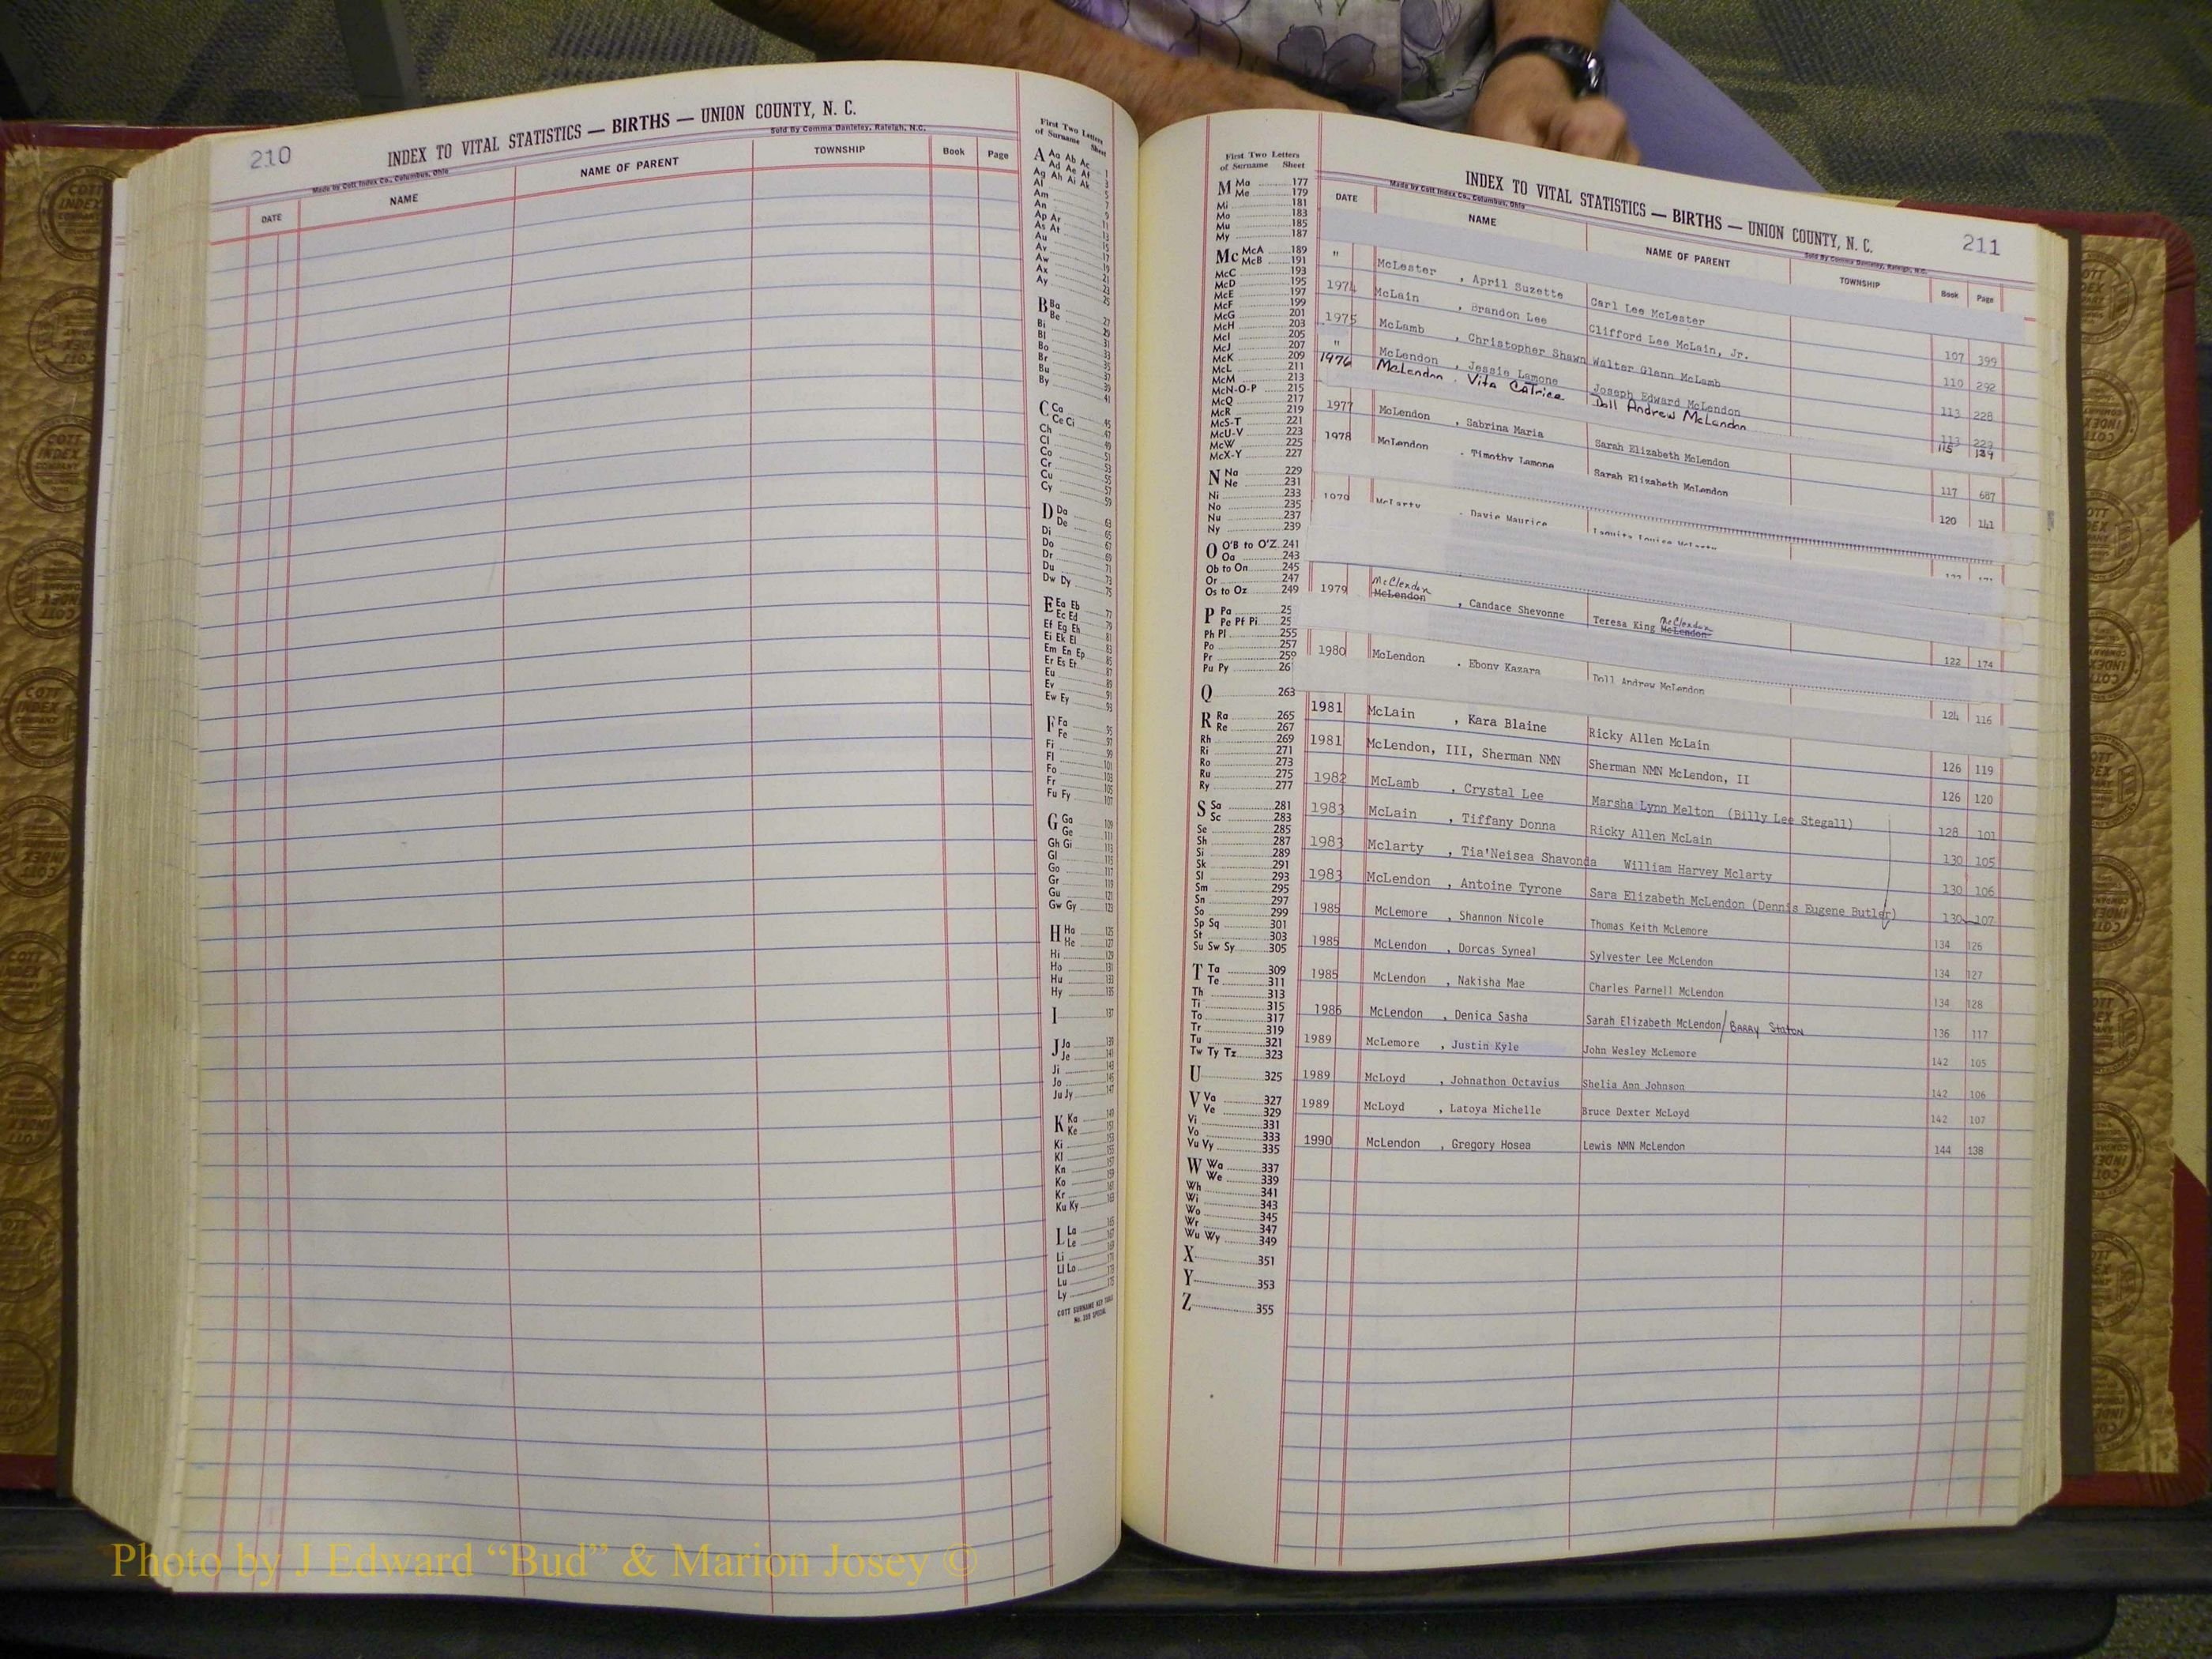 210
INDEX TO VITAL STATISTICS — BIRTHS — UNION COUNTY, N. C.
Made by Cott Index Co., Columbus, Ohio
Sold By Comma Danieley, Raleigh, N.C.
DATE NAME NAME OF PARENT TOWNSHIP Book Page
First Two Letters
of Surname Sheet
A Aa Ab Ac 1
Ad Ae Af 3
Ag Ah Ai Ak 5
Al
Am
An
Ap Ar 11
As At 13
Au 15
Av 17
Aw 19
Ax 21
Ay 23
B Ba 25
Be 27
Bi 29
Bl 31
Bo 33
Br 35
Bu 37
By 39
C Ca
Ce Ci 45
Ch 47
Cl 49
Co 51
Cr 53
Cu 55
Cy 57
D Da
De 63
Di 65
Do 67
Dr 69
Du 71
Dw Dy 73
E Ea Eb
Ec Ed 77
Ef Eg Eh 79
Ei Ek El 81
Em En Ep 83
Er Es Et 85
Eu 87
Ev 89
Ew Ey 91
F Fa
Fe 95
Fi 97
Fl 99
Fo 101
Fr 103
Fu Fy 105
G Ga 109
Ge 111
Gh Gi 113
Gl 115
Go 117
Gr 119
Gu 121
Gw Gy 123
H Ha 125
He 127
Hi 129
Ho 131
Hu 133
Hy 135
I 137
J Ja 139
Je 141
Ji 143
Jo 145
Ju Jy 147
K Ka 149
Ke 151
Ki 153
Kl 155
Kn 157
Ko 159
Kr 161
Ku Ky 163
L La 165
Le 167
Li 171
Ll Lo 173
Lu 175
Ly
COTT SURNAME KEY TABLE
No. 225 SPECIAL
First Two Letters
of Surname Sheet
M Ma 177
Me 179
Mi 181
Mo 183
Mu 185
My 187
Mc McA 189
McB 191
McC 193
McD 195
McE 197
McF 199
McG 201
McH 203
McI 205
McJ 207
McK 209
McL 211
McM 213
McN-O-P 215
McQ 217
McR 219
McS-T 221
McU-V 223
McW 225
McX-Y 227
N Na 229
Ne 231
Ni 233
No 235
Nu 237
Ny 239
O O'B to O'Z 241
Oa 243
Ob to On 245
Or 247
Os to Oz 249
P Pa
Pe Pf Pi
Ph Pl 255
Po 257
Pr 259
Pu Py
Q 263
R Ra 265
Re 267
Rh 269
Ri 271
Ro 273
Ru 275
Ry 277
S Sa 281
Sc 283
Se 285
Sh 287
Si 289
Sk 291
Sl 293
Sm 295
Sn 297
So 299
Sp Sq 301
St 303
Su Sw Sy 305
T Ta 309
Te 311
Th 313
Ti 315
To 317
Tr 319
Tu 321
Tw Ty Tz 323
U 325
V Va 327
Ve 329
Vi 331
Vo 333
Vu Vy 335
W Wa 337
We 339
Wh 341
Wi 343
Wo 345
Wr 347
Wu Wy 349
X 351
Y 353
Z 355
INDEX TO VITAL STATISTICS — BIRTHS — UNION COUNTY, N. C.
211
Made by Cott Index Co., Columbus, Ohio
Sold By Comma Danieley, Raleigh, N.C.
DATE NAME NAME OF PARENT TOWNSHIP Book Page
" McLester , April Suzette Carl Lee McLester 107 399
1974 McLain , Brandon Lee Clifford Lee McLain, Jr. 110 292
1975 McLamb , Christopher Shawn Walter Glenn McLamb 113 228
" McLendon , Jessie Lamone Joseph Edward McLendon 113 229
1976 McLendon . Vita Catrice Doll Andrew McLendon 115 139
1977 McLendon , Sabrina Maria Sarah Elizabeth McLendon 117 687
1978 McLendon . Timothy Lamone Sarah Elizabeth McLendon 120 141
1979 McLarty . Davie Maurice Louise McLarty
1979 McClendon McLendon , Candace Shevonne Teresa King McClendon McLendon 122 174
1980 McLendon . Ebony Kazara Doll Andrew McLendon 124 116
1981 McLain , Kara Blaine Ricky Allen McLain 126 119
1981 McLendon, III, Sherman NMN Sherman NMN McLendon, II 126 120
1982 McLamb , Crystal Lee Marsha Lynn Melton (Billy Lee Stegall) 128 101
1983 McLain , Tiffany Donna Ricky Allen McLain 130 105
1983 Mclarty , Tia'Neisea Shavonda William Harvey Mclarty 130 106
1983 McLendon , Antoine Tyrone Sara Elizabeth McLendon (Dennis Eugene Butler) 130 107
1985 McLemore , Shannon Nicole Thomas Keith McLemore 134 126
1985 McLendon , Dorcas Syneal Sylvester Lee McLendon 134 127
1985 McLendon , Nakisha Mae Charles Parnell McLendon 134 128
1986 McLendon , Denica Sasha Sarah Elizabeth McLendon/Barry Staton 136 117
1989 McLemore , Justin Kyle John Wesley McLemore 142 105
1989 McLoyd , Johnathon Octavius Shelia Ann Johnson 142 106
1989 McLoyd , Latoya Michelle Bruce Dexter McLoyd 142 107
1990 McLendon , Gregory Hosea Lewis NMN McLendon 144 138
Photo by J Edward “Bud” & Marion Josey ©